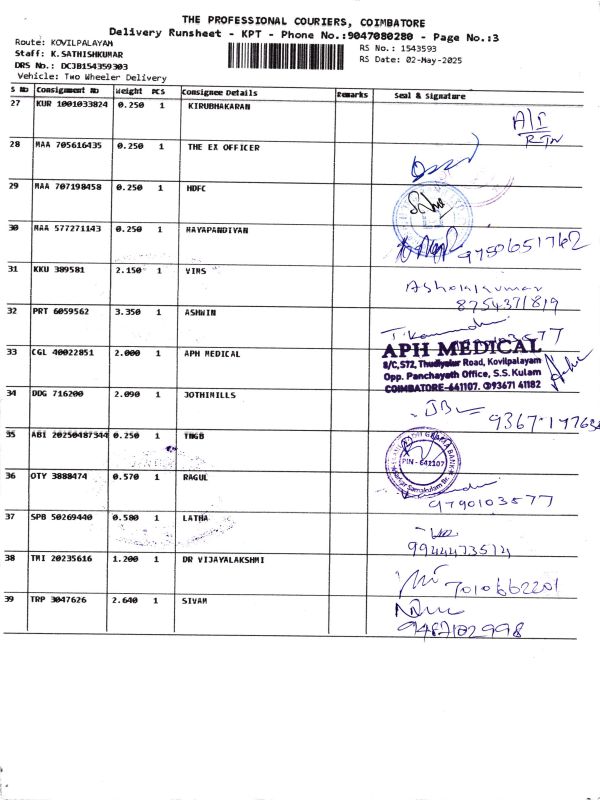 THE PROFESSIONAL COURIERS, COIMBATORE
Delivery Runsheet - KPT - Phone No.:9047080280 - Page No.:3
Route: KOVILPALAYAM
RS No.: 1543593
Staff: K.SATHISHKUMAR
RS Date: 02-May-2025
DRS No.: DCJB154359303
Vehicle: Two Wheeler Delivery
S No Consignment No Weight PCS Consignee Details Remarks Seal & Signature
27 KUR 1001033824 0.250 1 KIRUBHAKARAN
RTN
28 MAA 705616435 0.250 1 THE EX OFFICER
29 MAA 707198458 0.250 1 HDFC
30 MAA 577271143 0.250 1 MAYAPANDIYAN
9750651762
31 KKU 389581 2.150 1 VIMS
Asholakumar
8754371819
32 PRT 6059562 3.350 1 ASHWIN
33 CGL 40022851 2.000 1 APH MEDICAL
APH MEDICAL
8/C,572, Thudiyalur Road, Kovilpalayam
Opp. Panchayath Office, S.S. Kulam
COIMBATORE-641107. 93671 41182
34 DDG 716200 2.090 1 JOTHIMILLS
35 ABI 20250487344 0.250 1 TNGB
PIN - 641107
36 OTY 3888474 0.570 1 RAGUL
9790103577
37 SPB 50269440 0.580 1 LATHA
9944473514
38 TMI 20235616 1.200 1 DR VIJAYALAKSHMI
7010662201
39 TRP 3047626 2.640 1 SIVAM
9487102998